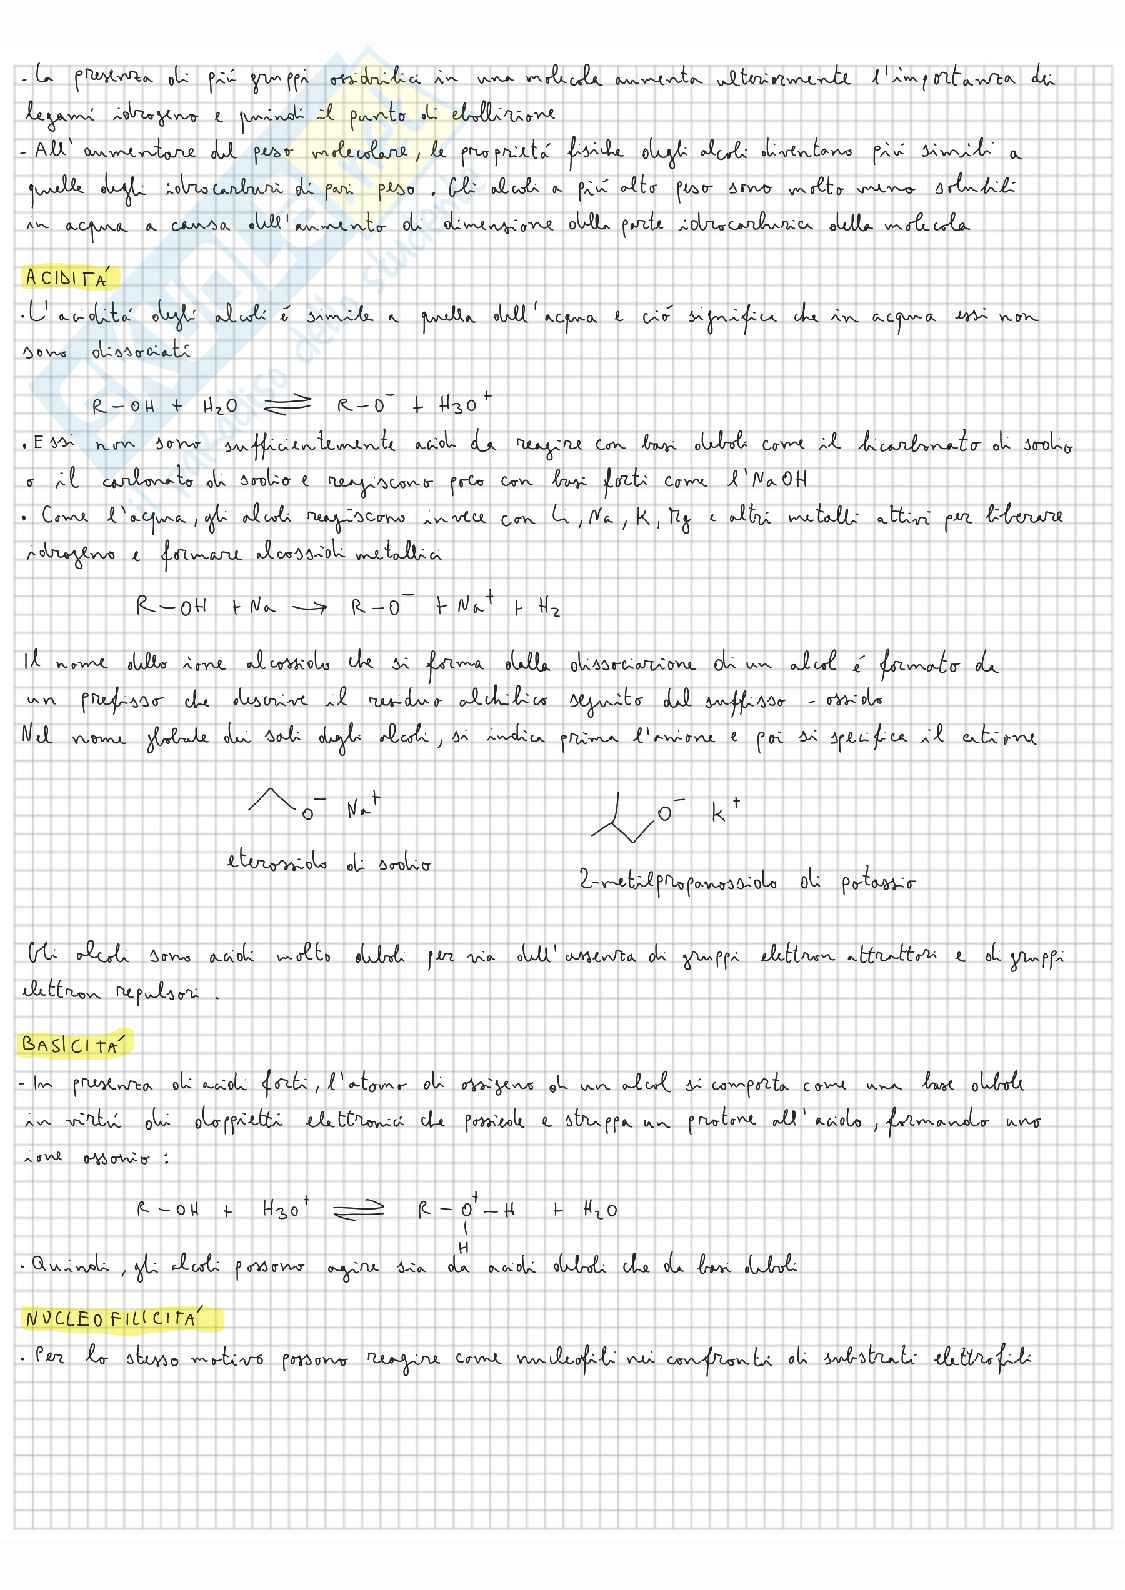 - La presenza di più gruppi ossidrilici in una molecola aumenta ulteriormente l'importanza dei
legami idrogeno e quindi il punto di ebollizione
- All'aumentare del peso molecolare, le proprietá fisiche degli alcoli diventano piú simili a
quelle degli idrocarburi di pari peso. Gli alcoli a piú alto peso sono molto meno solubili
in acqua a causa dell'aumento di dimensione della parte idrocarburica della molecola
ACIDITÁ
. L'aciditá degli alcoli é simile a quella dell'acqua e ció significa che in acqua essi non
sono dissociati
R-OH + H2O ⇌ R-O⁻ + H3O⁺
. Essi non sono sufficientemente acidi da reagire con basi deboli come il bicarbonato di sodio
o il carbonato di sodio e reagiscono poco con basi forti come l'NaOH
. Come l'acqua, gli alcoli reagiscono invece con Li, Na, K, Mg e altri metalli attivi per liberare
idrogeno e formare alcossidi metallici
R-OH + Na → R-O⁻ + Na⁺ + H2
Il nome dello ione alcossido che si forma dalla dissociazione di un alcol é formato da
un prefisso che descrive il residuo alchilico seguito dal suffisso -ossido
Nel nome globale dei sali degli alcoli, si indica prima l'anione e poi si specifica il catione
O⁻ Na⁺
O⁻ K⁺
eterossido di sodio
2-metilpropanossido di potassio
Gli alcoli sono acidi molto deboli per via dell'assenza di gruppi elettron attrattori e di gruppi
elettron repulsori.
BASICITÁ
- In presenza di acidi forti, l'atomo di ossigeno di un alcol si comporta come una base debole
in virtú dei doppietti elettronici che possiede e strappa un protone all'acido, formando uno
ione ossonio:
R-OH + H3O⁺ ⇌ R-O⁺-H + H2O
H
. Quindi, gli alcoli possono agire sia da acidi deboli che da basi deboli
NUCLEOFILICITÁ
. Per lo stesso motivo possono reagire come nucleofili nei confronti di substrati elettrofili